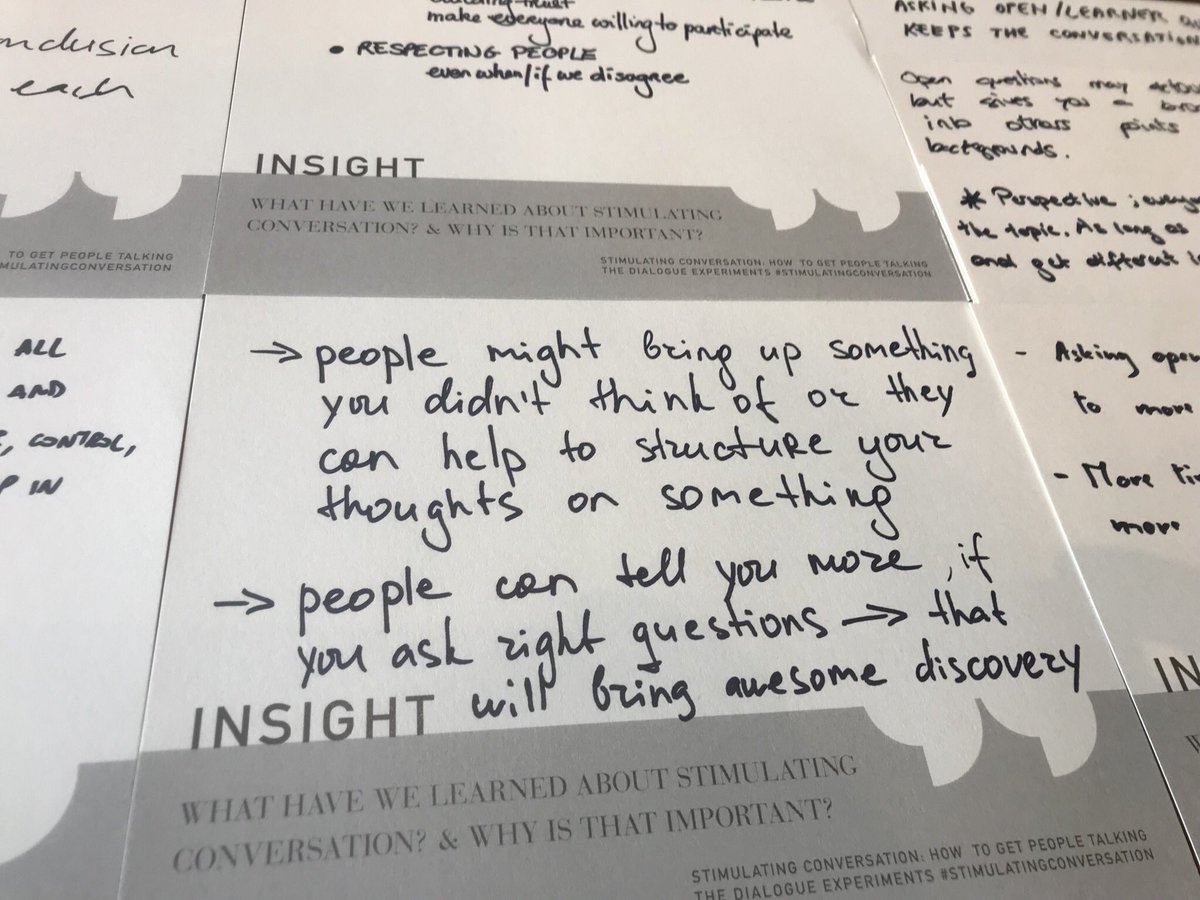 onclusion
each
TO GET PEOPLE TALKING
MULATINGCONVERSATION
make everyone willing to participate
• RESPECTING PEOPLE
even when/if we disagree
INSIGHT
WHAT HAVE WE LEARNED ABOUT STIMULATING
CONVERSATION? & WHY IS THAT IMPORTANT?
STIMULATING CONVERSATION: HOW TO GET PEOPLE TALKING
THE DIALOGUE EXPERIMENTS #STIMULATINGCONVERSATION
ASKING OPEN/LEARNER
KEEPS THE CONVERSATION
Open questions may
but gives you a
into others points
backgrounds.
* Perspective ; everyo
the topic. As long as
and get different
ALL
AND
, CONTROL,
P IN
→ people might bring up something
you didn't think of or they
can help to structure your
thoughts on something
→ people can tell you more, if
you ask right questions → that
will bring awesome discovery
INSIGHT
WHAT HAVE WE LEARNED ABOUT STIMULATING
CONVERSATION? & WHY IS THAT IMPORTANT?
STIMULATING CONVERSATION: HOW TO GET PEOPLE TALKING
THE DIALOGUE EXPERIMENTS #STIMULATINGCONVERSATION
- Asking open
to more
- More
more
IN